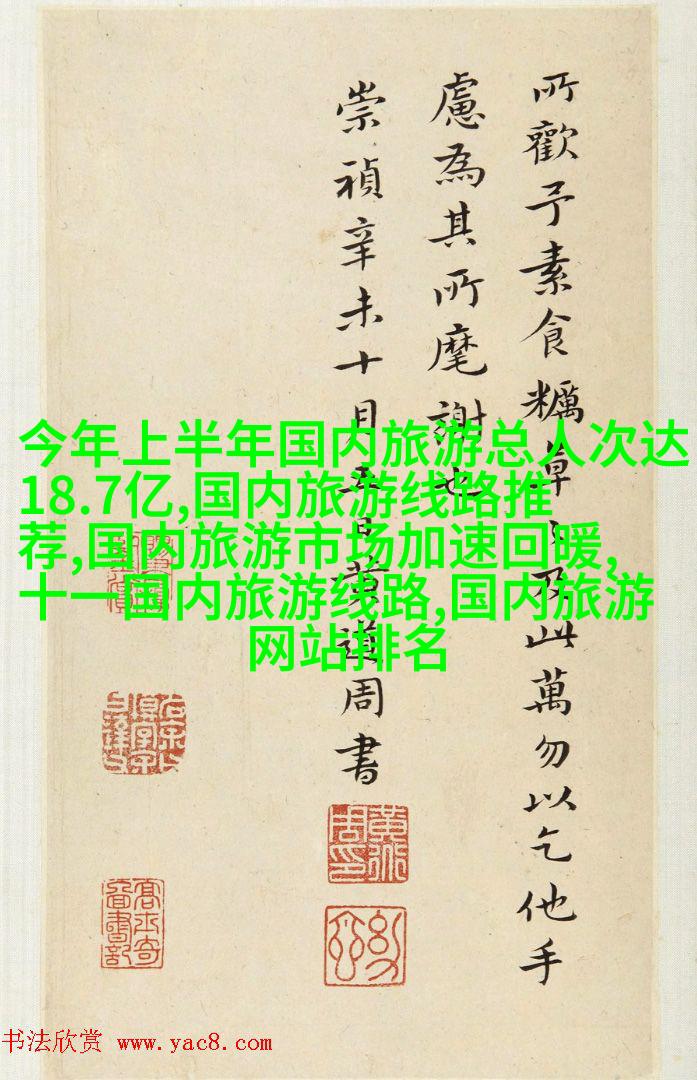 所歡予素食糲草々及此萬勿以乞他手
慮為其所麾謝也
崇禎辛未十月五日黄道周書
今年上半年国内旅游总人次达
18.7亿,国内旅游线路推
荐,国内旅游市场加速回暖,
十一国内旅游线路,国内旅游
网站排名
黃道周印
書法欣赏 www.yac8.com